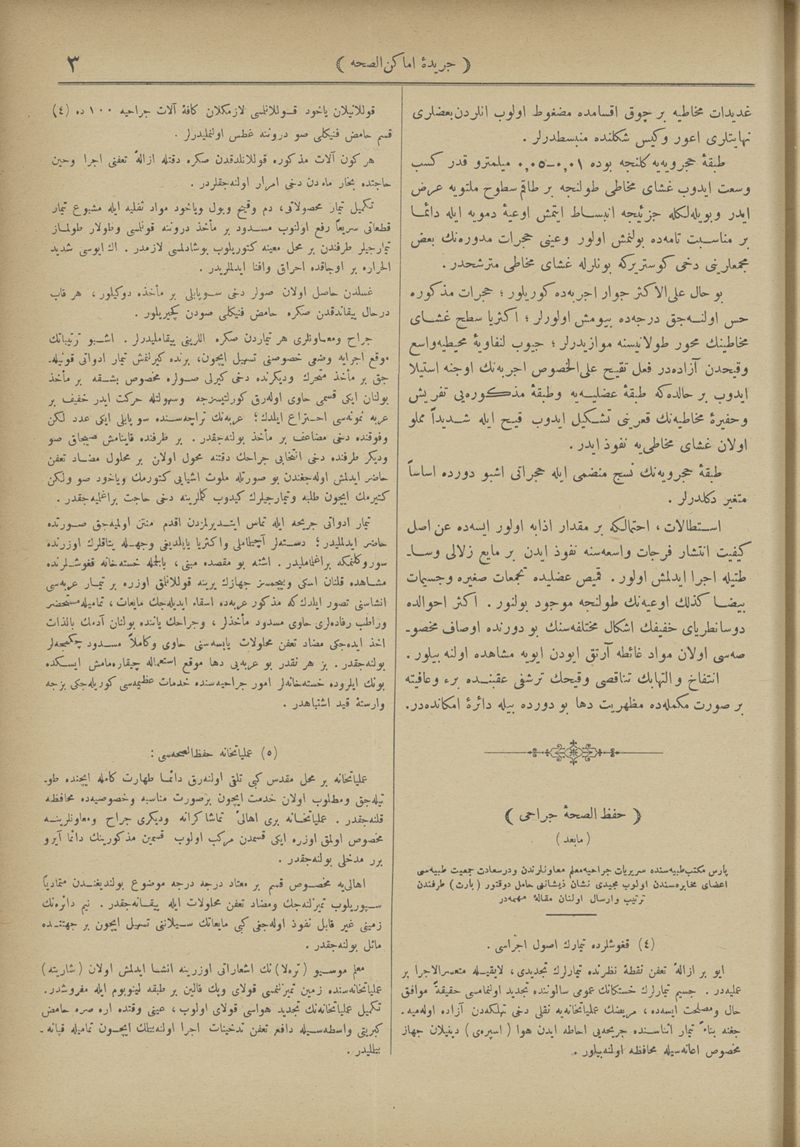 ٣
﴿ جريدۀ اماكن الصحه ﴾
غديدات مخاطيه بر چوق اقسامده مضغوط اولوب انلردن بعضلری
نهايتلری اعور وكيس شكلنده منبسطدرلر .
طبقۀ حجرويه‌يه كلنجه بوده ٠,٠١-٠,٠٥ ميلمترو قدر كسب
وسعت ايدوب غشای مخاطی طولنجه بر طاقم سطوح ملتويه عرض
ايدر وبويله‌لكله جزئيجه انبساط ايتمش اوعيۀ دمويه ايله دائما
بر مناسبت تامه‌ده بولنمش اولور وعينی حجرات مدوره‌نك بعض
مجمعلرينی دخی كوستريركه بونلرله غشای مخاطی مترشحدر .
بو حال علی الاكثر جوار اجربه‌ده كوريلور ؛ حجرات مذكوره
حس اولنه‌جق درجه‌ده بيومش اولورلر ؛ اكثريا سطح غشای
مخاطينك محور طولانيسنه موازيدرلر ؛ جيوب لنفاويۀ محيطيه‌واسع
وقيحدن آزاده‌در فعل تقيح علی الخصوص اجربه‌نك اوجنه استيلا
ايدوب بر حالده‌كه طبقۀ عضليه‌يه وطبقۀ مذكوره‌يی تفريش
وحفيرۀ مخاطيه‌نك قعرينی تشكيل ايدوب قيح ايله شديداً مملو
اولان غشای مخاطی‌يه نفوذ ايدر .
طبقۀ حجرويه‌نك نسج منضمی ايله حجراتی اشبو دورده اساساً
متغير دكلدرلر .
استطالات ، احتمالكه بر مقدار اذابه اولور ايسه‌ده عن اصل
كيفيت انتشار فرجات واسعه‌سنه نفوذ ايدن بر مايع زلالی وسا-
طتيله اجرا ايدلمش اولور . قميص عضليده تجمعات صغيره وجسيمات
بيضا كذلك اوعيه‌نك طولنجه موجود بولنور . اكثر احوالده
دوسانطريای خفيفك اشكال مختلفه‌سنك بو دورنده اوصاف مخصو-
صه‌سی اولان مواد غائطه آرتق ايودن ايويه مشاهده اولنه بيلور .
انتفاخ والتهابك تناقصی وقيحك ترشفی عقبنده برء وعافيته
بر صورت مكمله‌ده مظهريت دها بو دورده بيله دائرۀ امكانده‌در.
﴿ حفظ الصحۀ جراحی ﴾
( مابعد )
پارس مكتب طبيه‌سنده سريريات جراحيه معلم معاونلرندن ودرسعادت جمعيت طبيه‌سی
اعضای مخابره‌سندن اولوب مجيدی نشان ذيشانی حامل دوقتور (بارت) طرفندن
ترتيب وارسال اولنان مقالۀ مهمه‌در
(٤) قغوشلرده تيمارك اصول اجراسی .
ايو بر ازالۀ تعفن نقطۀ نظرنده تيمارلرك تجديدی ، لايقيله متعسر الاجرا بر
عمليه‌در . جسيم تيمارلرك خستكانك عمومی سالوننده تجديد اولنمامسی حقيقةً موافق
حال ومصلحت ايسه‌ده ، مريضك عملياتخانه‌يه نقلی دخی تهلكه‌دن آزاده اوله‌ميه-
جغنه بناءً تيمار اثناسنده جريحه‌يی احاطه ايدن هوا (اسپره‌ی) دينيلان جهاز
مخصوص اعانه‌سيله محافظه اولنه‌بيلور .
قوللانيلان ياخود قوللانلمسی لازمكلان كافۀ آلات جراحيه ١٠٠ ده (٤)
قسم حامض فنيكلی صو دروننه غطس اولنمليدرلر .
هر كون آلات مذكوره قوللانلدقدن صكره دقتله ازالۀ تعفنی اجرا وحين
حاجتده بخار ماءدن دخی امرار اولنه‌جقلردر .
تكميل تيمار محصولاتی ، دم وقيح وبول وياخود مواد ثفليه ايله مشبوع تيمار
قطعاتی سريعاً رفع اولنوب مسدود بر مأخذ دروننه قونلمسی وطولار طولماز
تيمارجيلر طرفندن بر محل معينه كتوريلوب بوشادلمسی لازمدر . اك ايوسی شديد
الحراره بر اوجاقده احراق وافنا ايدلمليدر.
غسلدن حاصل اولان صولر دخی سوپاپلی بر مأخذه دوكيلور ، هر قاب
درحال پيقاندقدن صكره حامض فنيكلی صودن كچيريلور .
جراح ومعاونلری هر تيماردن صكره اللرينی پيقامليدرلر . اشبو ترتيباتك
موقع اجرايه وضعی خصوصنی تسهيل ايچون ، برنده كيرلنمش تيمار ادواتی قونيله-
جق بر مأخذ متحرك وديكرنده دخی كيرلی صولره مخصوص بشقه بر مأخذ
بولنان ايكی قسمی حاوی اوله‌رق كورلتيسزجه وسهولتله حركت ايدر خفيف بر
عربه نمونه‌سی اختراع ايلدك ؛ عربه‌نك تراچه‌سنده سوپاپلی ايكی عدد لكن
وفوقنده دخی مضاعف بر مأخذ بولنه‌جقدر . بر طرفنده قاينامش صيجاق صو
وديكر طرفنده دخی انتخابی جراحك دقتنه محول اولان بر محلول مضاد تعفن
حاضر ايدلمش اوله‌جغندن بو صورتله ملوث اشيايی كتورمك وياخود صو ولكن
كتيرمك ايچون طلبه وتيمارجيلرك كيدوب كلملرينه دخی حاجت براغلميه‌جقدر .
تيمار ادواتی جريحه ايله تماس ايتديرلمزدن اقدم متنن اولميه‌جق صورتده
حاضر ايدلمليدر ؛ دستلر آچلملی واكثريا ياپلديغی وجهله يتاقلرك اوزرنده
سوروكلنمكه براغلماملیدر . اشته بو مقصده مبنی ، بالجمله خسته‌خانه قغوشلرنده
مشاهده قلنان اسكی وبيچمسز جهازك يرينه قوللانلق اوزره بر تيمار عربه‌سی
انشاسنی تصور ايلدك كه مذكور عربه‌ده اسقاء ايديله‌جك مايعات ، تماميله مستحضر
وراطب رفاده‌لری حاوی مسدود مأخذلر ، وجراحك ياننده بولنان آدمك بالذات
اخذ ايده‌جكی مضاد تعفن محلولات يابسه‌سنی حاوی وكاملاً مسدود چكمجه‌لر
بولنه‌جقدر . بز هر نقدر بو عربه‌يی دها موقع استعماله چيقارمامش ايسكده
بونك ايلروده خسته‌خانه‌لر امور جراحيه‌سنده خدمات عظيمه‌سی كوريله‌جكی بزجه
وارستۀ قيد اشتباهدر .
(٥) عملياتخانه حفظ الصحه‌سی :
عملياتخانه بر محل مقدس كبی تلقی اولنه‌رق دائما طهارت كامله ايچنده طو-
تيله‌جق ومطلوب اولان خدمت ايچون برصورت مناسبه وخصوصيه‌ده محافظه
قلنه‌جقدر . عملياتخانه بری اهالیء تماشاكرانه وديكری جراح ومعاونلرينه
مخصوص اولمق اوزره ايكی قسمدن مركب اولوب قسمين مذكورينك دائما آيرو
برر مدخلی بولنه‌جقدر .
اهالی‌يه مخصوص قسم بر معتاد درجه درجه موضوع بولنديغندن متمادياً
سوپوريلوب تميزلنه‌جك ومضاد تعفن محلولات ايله پيقانه‌جقدر . نيم دائره‌نك
زمينی غير قابل نفوذ اوله‌جغی كبی مايعاتك سيلانی تسهيل ايچون بر جهتنده
مائل بولنه‌جقدر .
معلم موسيو (تره‌لا) نك اشعاراتی اوزرينه انشا ايدلمش اولان (شاريته)
عملياتخانه‌سنده زمين تميزلنمسی قولای وپك قالين بر طبقه لينوبوم ايله مفروشدر.
تكميل عملياتخانه‌نك تجديد هواسی قولای اولوب ، عينی وقتده اره صره حامض
كبريتی واسطه‌سيله دافع تعفن تدخينات اجرا اولنه‌بيلمك ايچون تماميله قپانه-
بيلمليدر .